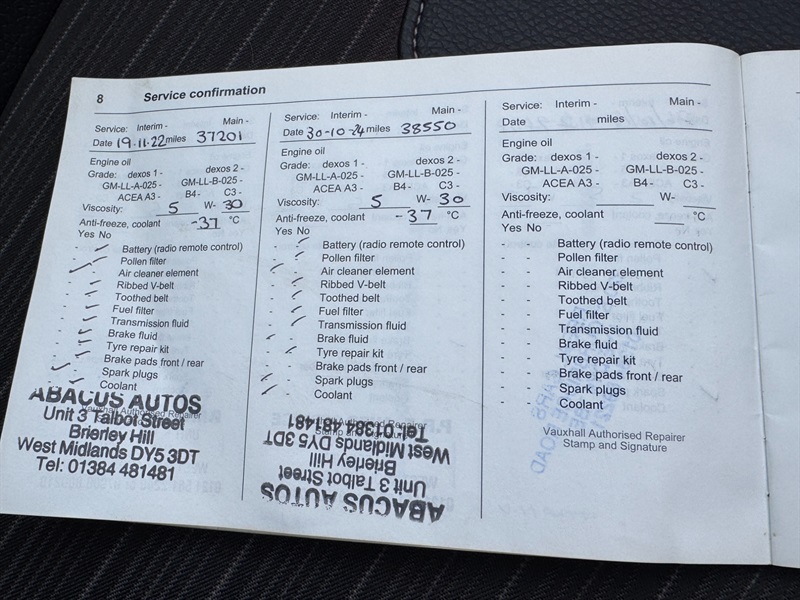 8 Service confirmation
Service: Interim - Main -
Date 19.11.22 miles 37201
Engine oil
Grade: dexos 1 - dexos 2 -
GM-LL-A-025 - GM-LL-B-025 -
ACEA A3 - B4 - C3 -
Viscosity: 5 W- 30
Anti-freeze, coolant -37 °C
Yes No
- Battery (radio remote control)
- Pollen filter
- Air cleaner element
- Ribbed V-belt
- Toothed belt
- Fuel filter
- Transmission fluid
- Brake fluid
- Tyre repair kit
- Brake pads front / rear
- Spark plugs
- Coolant
Vauxhall Authorised Repairer
ABACUS AUTOS
Unit 3 Talbot Street
Brierley Hill
West Midlands DY5 3DT
Tel: 01384 481481
Service: Interim - Main -
Date 30-10-24 miles 38550
Engine oil
Grade: dexos 1 - dexos 2 -
GM-LL-A-025 - GM-LL-B-025 -
ACEA A3 - B4 - C3 -
Viscosity: 5 W- 30
Anti-freeze, coolant -37 °C
Yes No
- Battery (radio remote control)
- Pollen filter
- Air cleaner element
- Ribbed V-belt
- Toothed belt
- Fuel filter
- Transmission fluid
- Brake fluid
- Tyre repair kit
- - Brake pads front / rear
- Spark plugs
- Coolant
Vauxhall Authorised Repairer
Stamp and Signature
ABACUS AUTOS
Unit 3 Talbot Street
Brierley Hill
West Midlands DY5 3DT
Tel: 01384 481481
Service: Interim - Main -
Date miles
Engine oil
Grade: dexos 1 - dexos 2 -
GM-LL-A-025 - GM-LL-B-025 -
ACEA A3 - B4 - C3 -
Viscosity: W-
Anti-freeze, coolant °C
Yes No
- - Battery (radio remote control)
- - Pollen filter
- - Air cleaner element
- - Ribbed V-belt
- - Toothed belt
- - Fuel filter
- - Transmission fluid
- - Brake fluid
- - Tyre repair kit
- - Brake pads front / rear
- - Spark plugs
- - Coolant
Vauxhall Authorised Repairer
Stamp and Signature